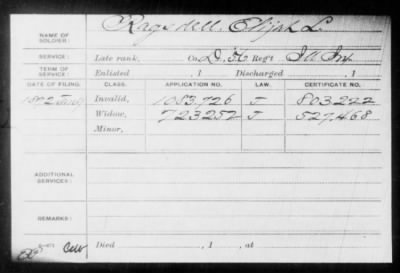 NAME OF SOLDIER: Ragsdell, Elijah L.
SERVICE: Late rank, Co. D, 56 Reg't Ill Inf
TERM OF SERVICE: Enlisted , 1 Discharged , 1
DATE OF FILING. CLASS. APPLICATION NO. LAW. CERTIFICATE NO.
1892 Invalid, 1083,726 J 803222
Widow, 723252 J 527,468
Minor,
ADDITIONAL SERVICES:
REMARKS:
Died , 1 , at